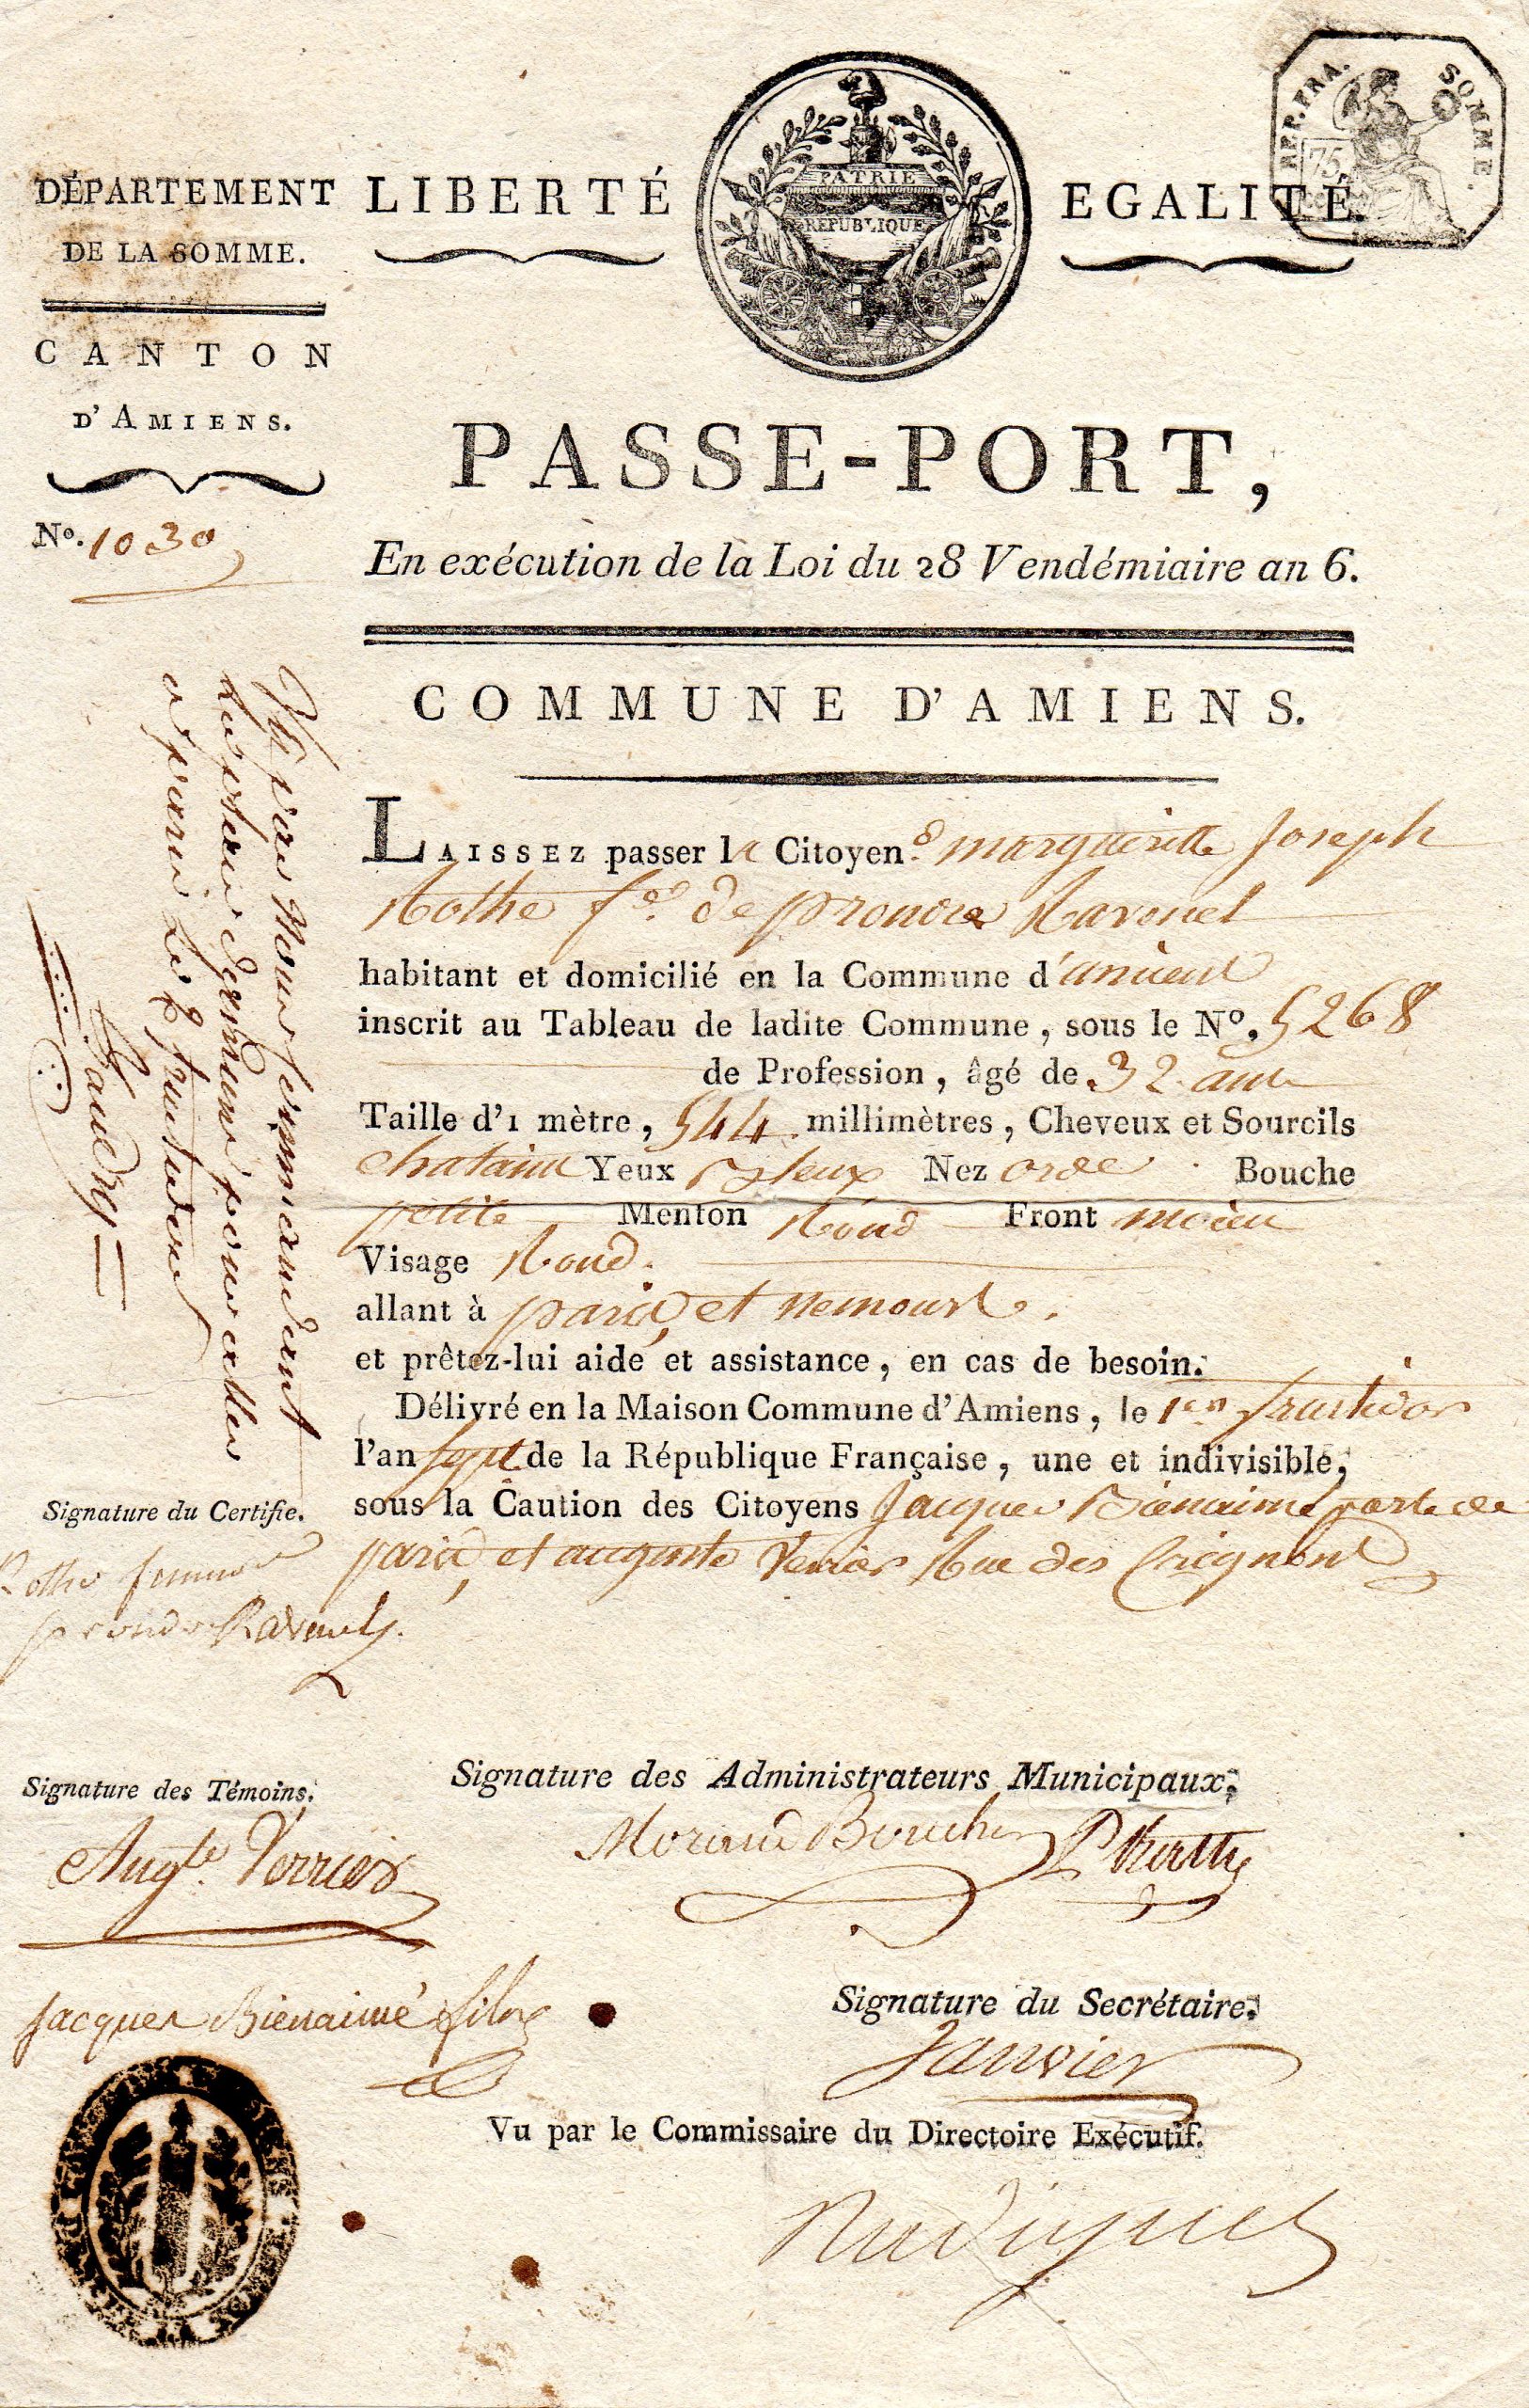 DÉPARTEMENT
DE LA SOMME.
CANTON
D'AMIENS.
No. 1030
LIBERTÉ
PATRIE
REPUBLIQUE
EGALITÉ.
REP. FRA.
SOMME.
75
PASSE-PORT,
En exécution de la Loi du 28 Vendémiaire an 6.
COMMUNE D'AMIENS.
LAISSEZ passer la Citoyenne margueritte Joseph
Rothe fe. de pronder Ravenel
habitant et domicilié en la Commune d'amiens
inscrit au Tableau de ladite Commune, sous le No. 5268
de Profession, âgé de 32 ans
Taille d'1 mètre, 544 millimètres, Cheveux et Sourcils
chatains Yeux Bleux Nez orde Bouche
petite Menton Rond Front moien
Visage Rond.
allant à paris, et nemours.
et prêtez-lui aide et assistance, en cas de besoin.
Délivré en la Maison Commune d'Amiens, le 1er fructidor
l'an sept de la République Française, une et indivisible,
sous la Caution des Citoyens Jacques Bienaimé porte de
paris, et auguste Verrier Rue des Crignons
Vu par Nous Commandant
pour aller
a paris le 2 fructidor
Baudry
Signature du Certifie.
Rothe femme
Ravenel
Signature des Témoins.
Augte. Verrier
Jacques Bienaimé fils
Signature des Administrateurs Municipaux,
Morand Boucher
Signature du Secrétaire.
Janvier
Vu par le Commissaire du Directoire Exécutif.